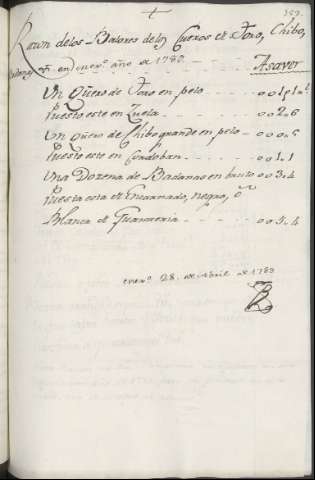 +
Razn de los Balores de los Cueros de Toro, Chibo,
en enero año de 1780. Asaver
Un Quero de Toro en pelo
Puesto este en Zuela 002.6
Un quero de Chibo grande en pelo 000.5
Puesto este en Cordoban 001.1
Una Dozena de Badanas en bruto 003.4
Puesta esta de Encarnado, negro, o
Blanca de Guarneria 005.4
28. de Abril de 1780